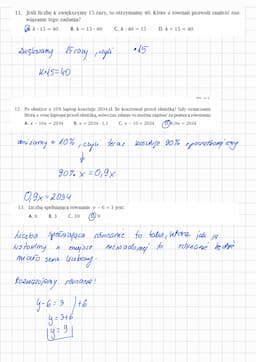 11. Jeśli liczbę k zwiększymy 15 razy, to otrzymamy 40. Które z równań pozwoli znaleźć rozwiązanie tego zadania?
A. k · 15 = 40 B. k = 15 · 40 C. k · 40 = 15 D. k + 15 = 40
15 razy, czyli ·15
k·15=40
12. Po obniżce o 10% laptop kosztuje 2034 zł. Ile kosztował przed obniżką? Gdy oznaczymy literą x cenę laptopa przed obniżką, wówczas zdanie to można zapisać za pomocą równania:
A. x − 10x = 2034 B. x = 2034 · 1,1 C. x − 10 = 2034 D. 0,9x = 2034
o 10%, czyli teraz kosztuje 90%
↓
90% x = 0,9x
0,9x = 2034
13. Liczbą spełniającą równanie y − 6 = 3 jest:
A. 6 B. 3 C. 10 D. 9
Liczba spełniająca równanie to taka, która jak ją
wstawimy w miejsce niewiadomej to równanie będzie
miało sens liczbowy.
Rozwiązujemy równanie:
y-6=3 /+6
y=3+6
y=9